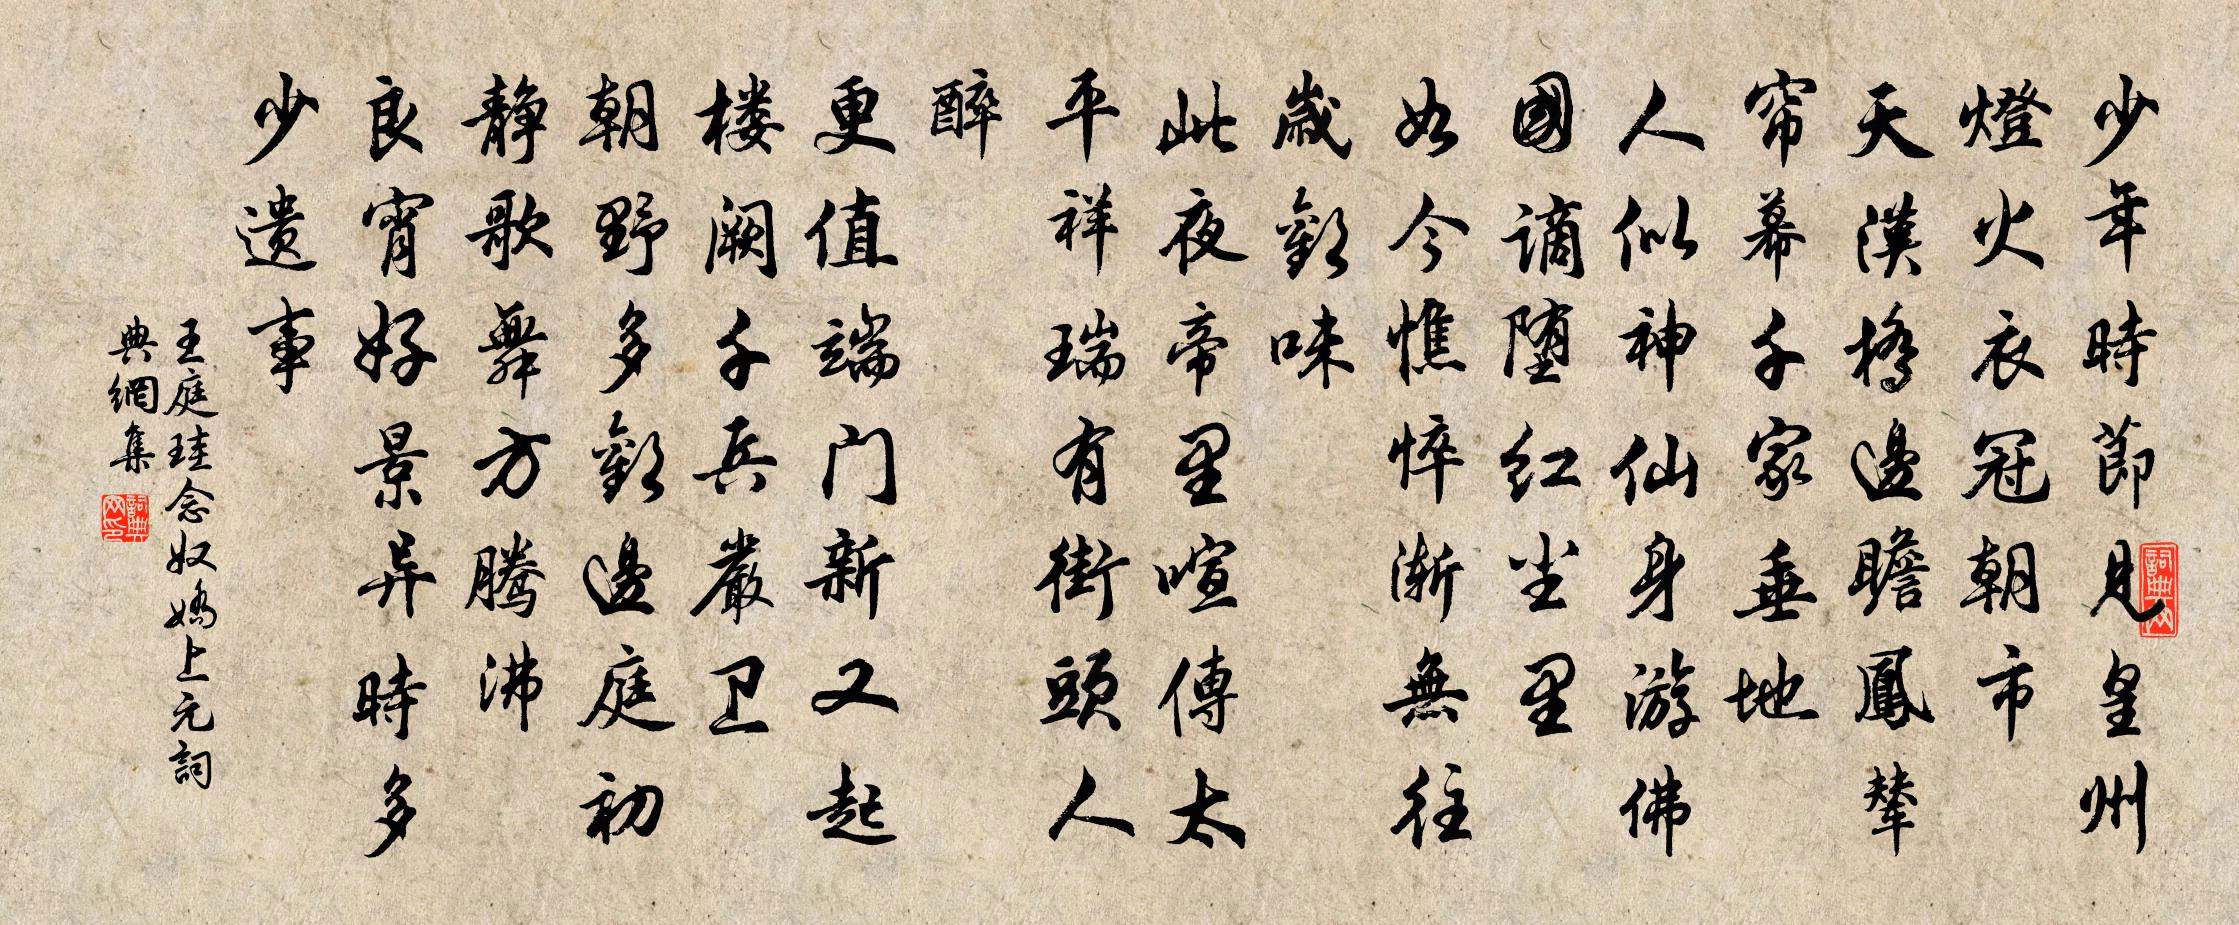 少年時節見皇州
燈火衣冠朝市
天漢橋邊瞻鳳輦
帘幕千家垂地
人似神仙身游佛
國謫堕红尘里
如今憔悴漸無往
歲歡味
此夜帝里喧傳太
平祥瑞有街頭人
醉
更值端门新又起
楼阙千兵嚴卫
朝野多歡邊庭初
靜歌舞方腾沸
良宵好景异時多
少遗事
王庭珪念奴嬌上元詞
典網集
詞典网
詞典网印